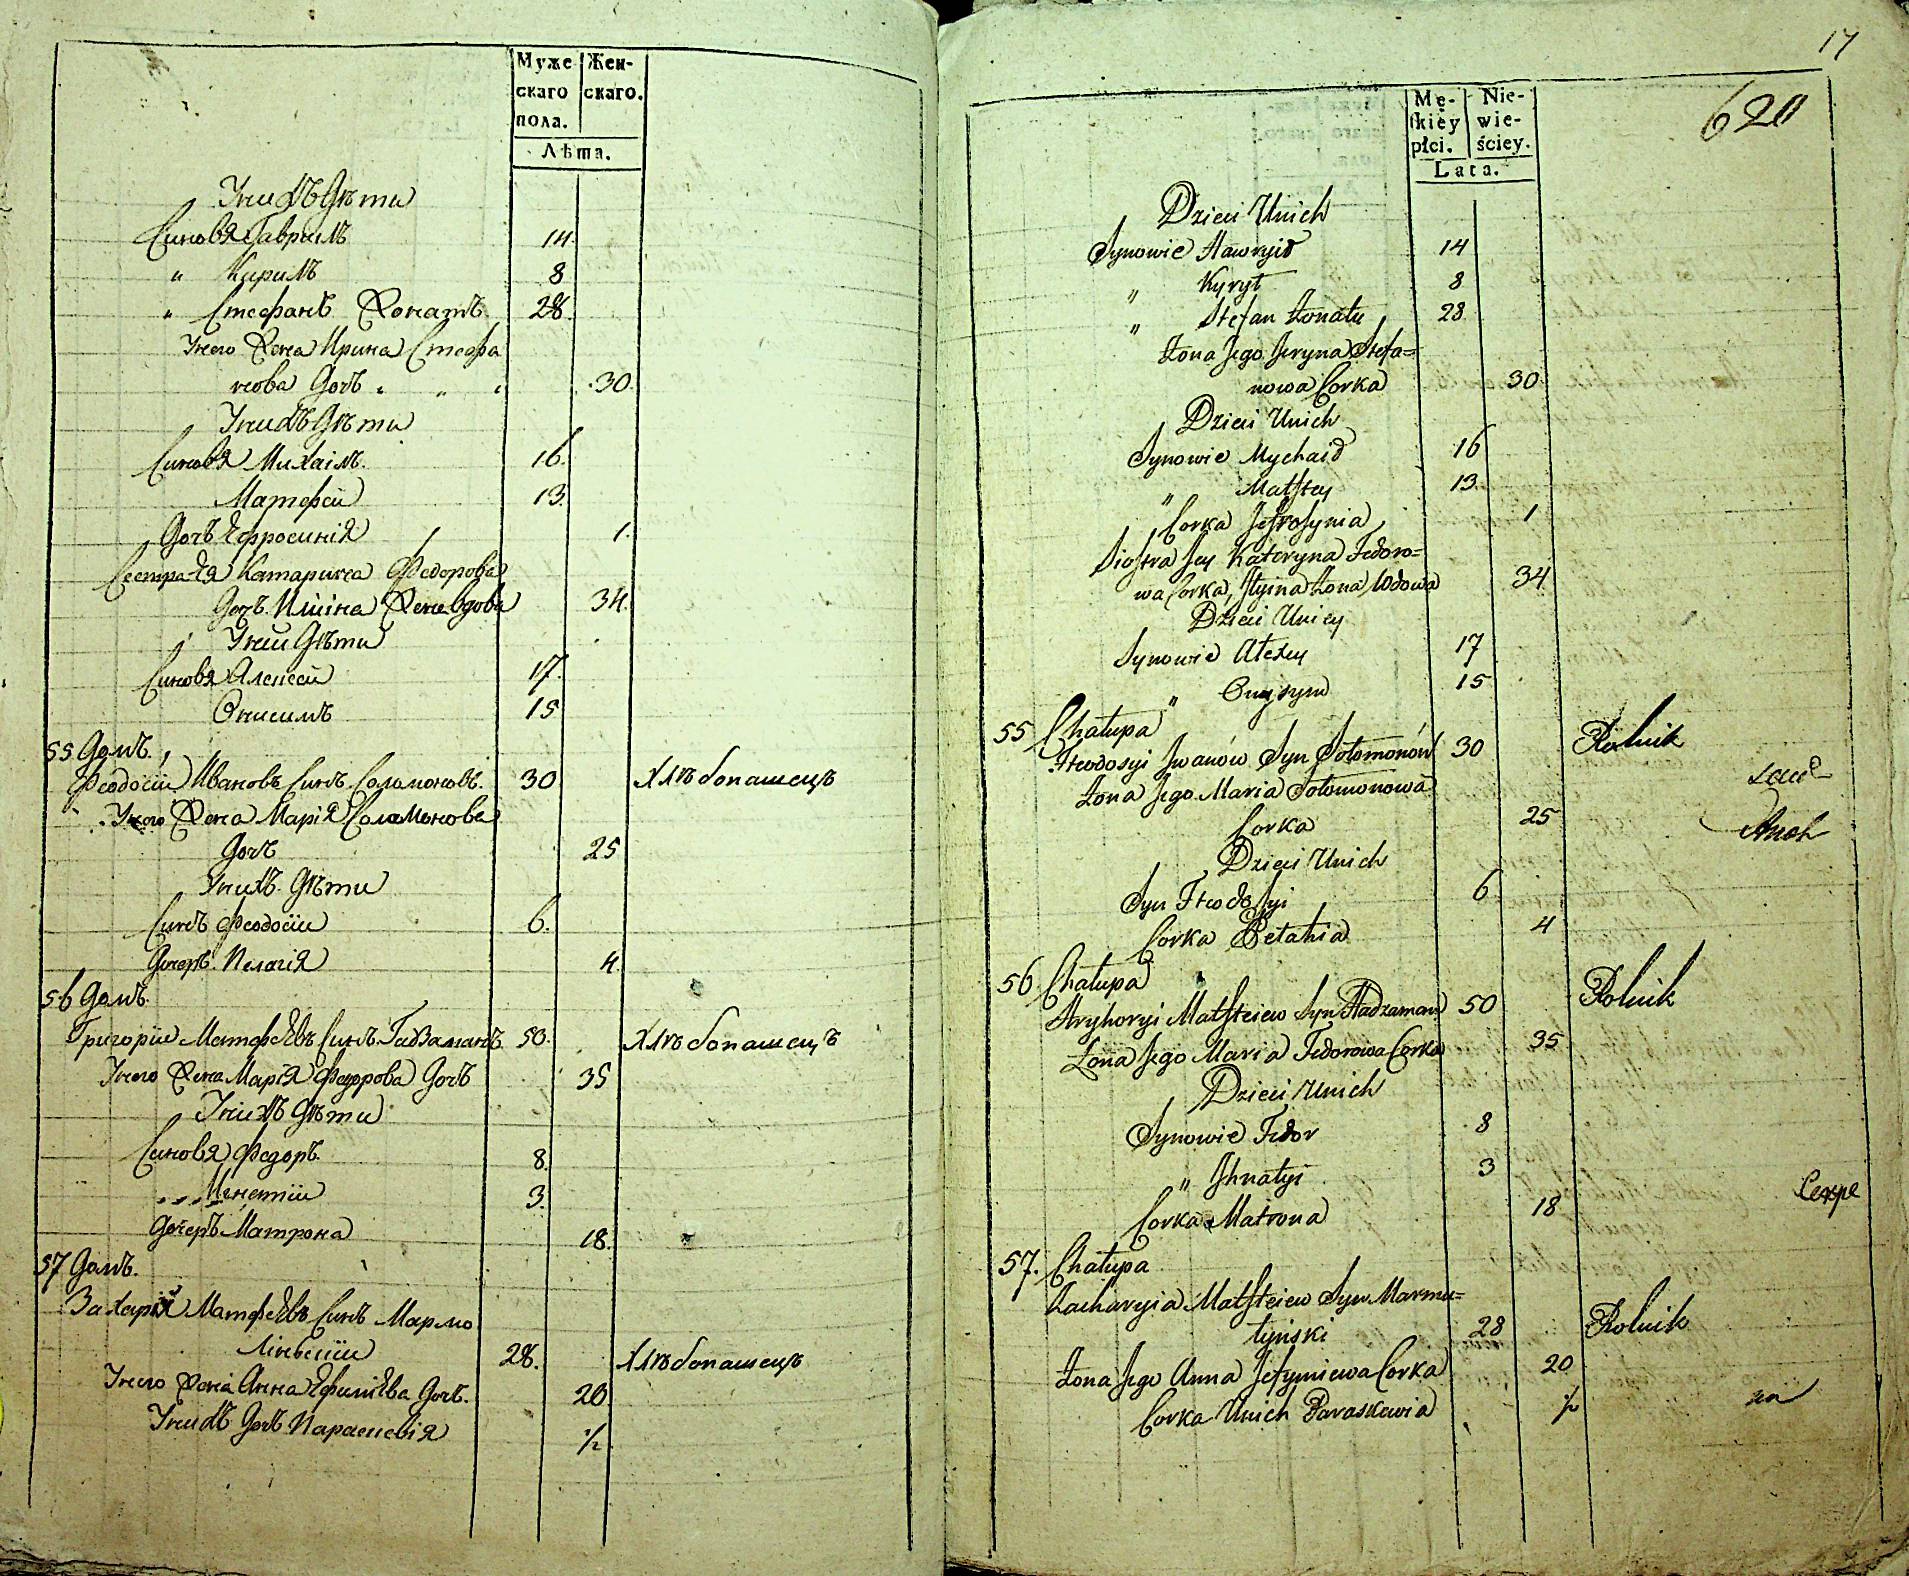 Муже
скаго
пола.
Жен-
скаго.
Лѣта.
Унихъ Дѣти
Синовя Гаврилъ 14.
" Кирилъ 8
" Стефанъ Женатъ. 28.
Унего Жена Ирина Стефа
нова Дочь " " " 30.
Унихъ Дѣти
Синовя Михаилъ. 16.
Матфей 13.
Дочь Ефросинія 1.
Сестра Ея Катарина Федорова
Дочь. Илііна Жена Вдова 34.
Уней Дѣти
Синовя Алексей 17.
Онисимъ 15
55 Домъ.
Феодосій Ивановъ Синъ Соломоновъ. 30 Хлѣбопашецъ
Унего Жена Марія Соломонова
Дочь 25
Унихъ Дѣти
Синъ Феодосій 6.
Дочеръ. Пелагія 4.
56 Домъ.
Григорій Матфѣевъ Синъ Гадзаманъ 50. Хлѣбопашецъ
Унего Жена Марія Федорова Дочь 35
Унихъ Дѣти
Синовя Федоръ. 8.
" " " Игнатій 3.
Дочеръ Матрона 18.
57 Домъ.
Захарій Матфѣевъ Синъ Мармо
лінскій 28. Хлѣбопашецъ
Унего Жена Анна Ефимѣва Дочь. 20
Унихъ Дочь Параскевія ½
17
620
Mę-
skiey
płci.
Nie-
wie-
ściey.
Lata.
Dzieci Unich
Synowie Hawryił 14
" Kyrył 8
" Stefan Żonatu 28
Żona Jego Jeryna Stefa=
nowa Corka 30
Dzieci Unich
Synowie Mychaił 16
" Matftey 13
Corka Jefrosynia 1
Siostra Jey Kateryna Fedoro=
wa Corka, Ilyina Żona Wdowa 34
Dzieci Uniey
Synowie Ałexey 17
" Onysym 15
55 Chałupa
Fteodosyi Jwanów Syn Sołomonów 30 Rolnik
Żona Jego Maria Sołomonowa
Corka 25
Dzieci Unich
Syn Fteodosyi 6
Corka Pełahia 4
56 Chałupa
Hryhoryi Matfteiew Syn Hadzaman 50 Rolnik
Żona Jego Maria Fedorowa Corka 35
Dzieci Unich
Synowie Fedor 8
" Jhnatyi 3
Corka Matrona 18
57. Chałupa
Zacharyia Matfteiew Syn Marmu=
łyński 28 Rolnik
Żona Jego Anna Jefymiewa Corka 20
Corka Unich Paraskewia ½